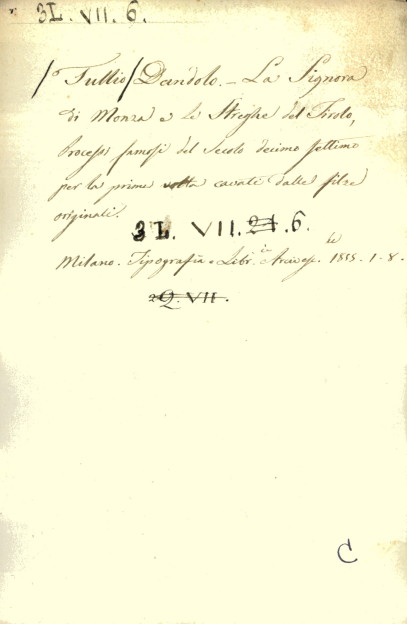 3L. VII. 6.
Tullio Dandolo. - La Signora
di Monza e le Streghe del Tirolo,
Processi famosi del Secolo decimo settimo
per la prima volta cavati dalle filze
originali.
3L. VII. 21. 6.
Milano. Tipografia e Libr.ia Arcivesc.le 1855. 1. 8.
2Q. VII.
C